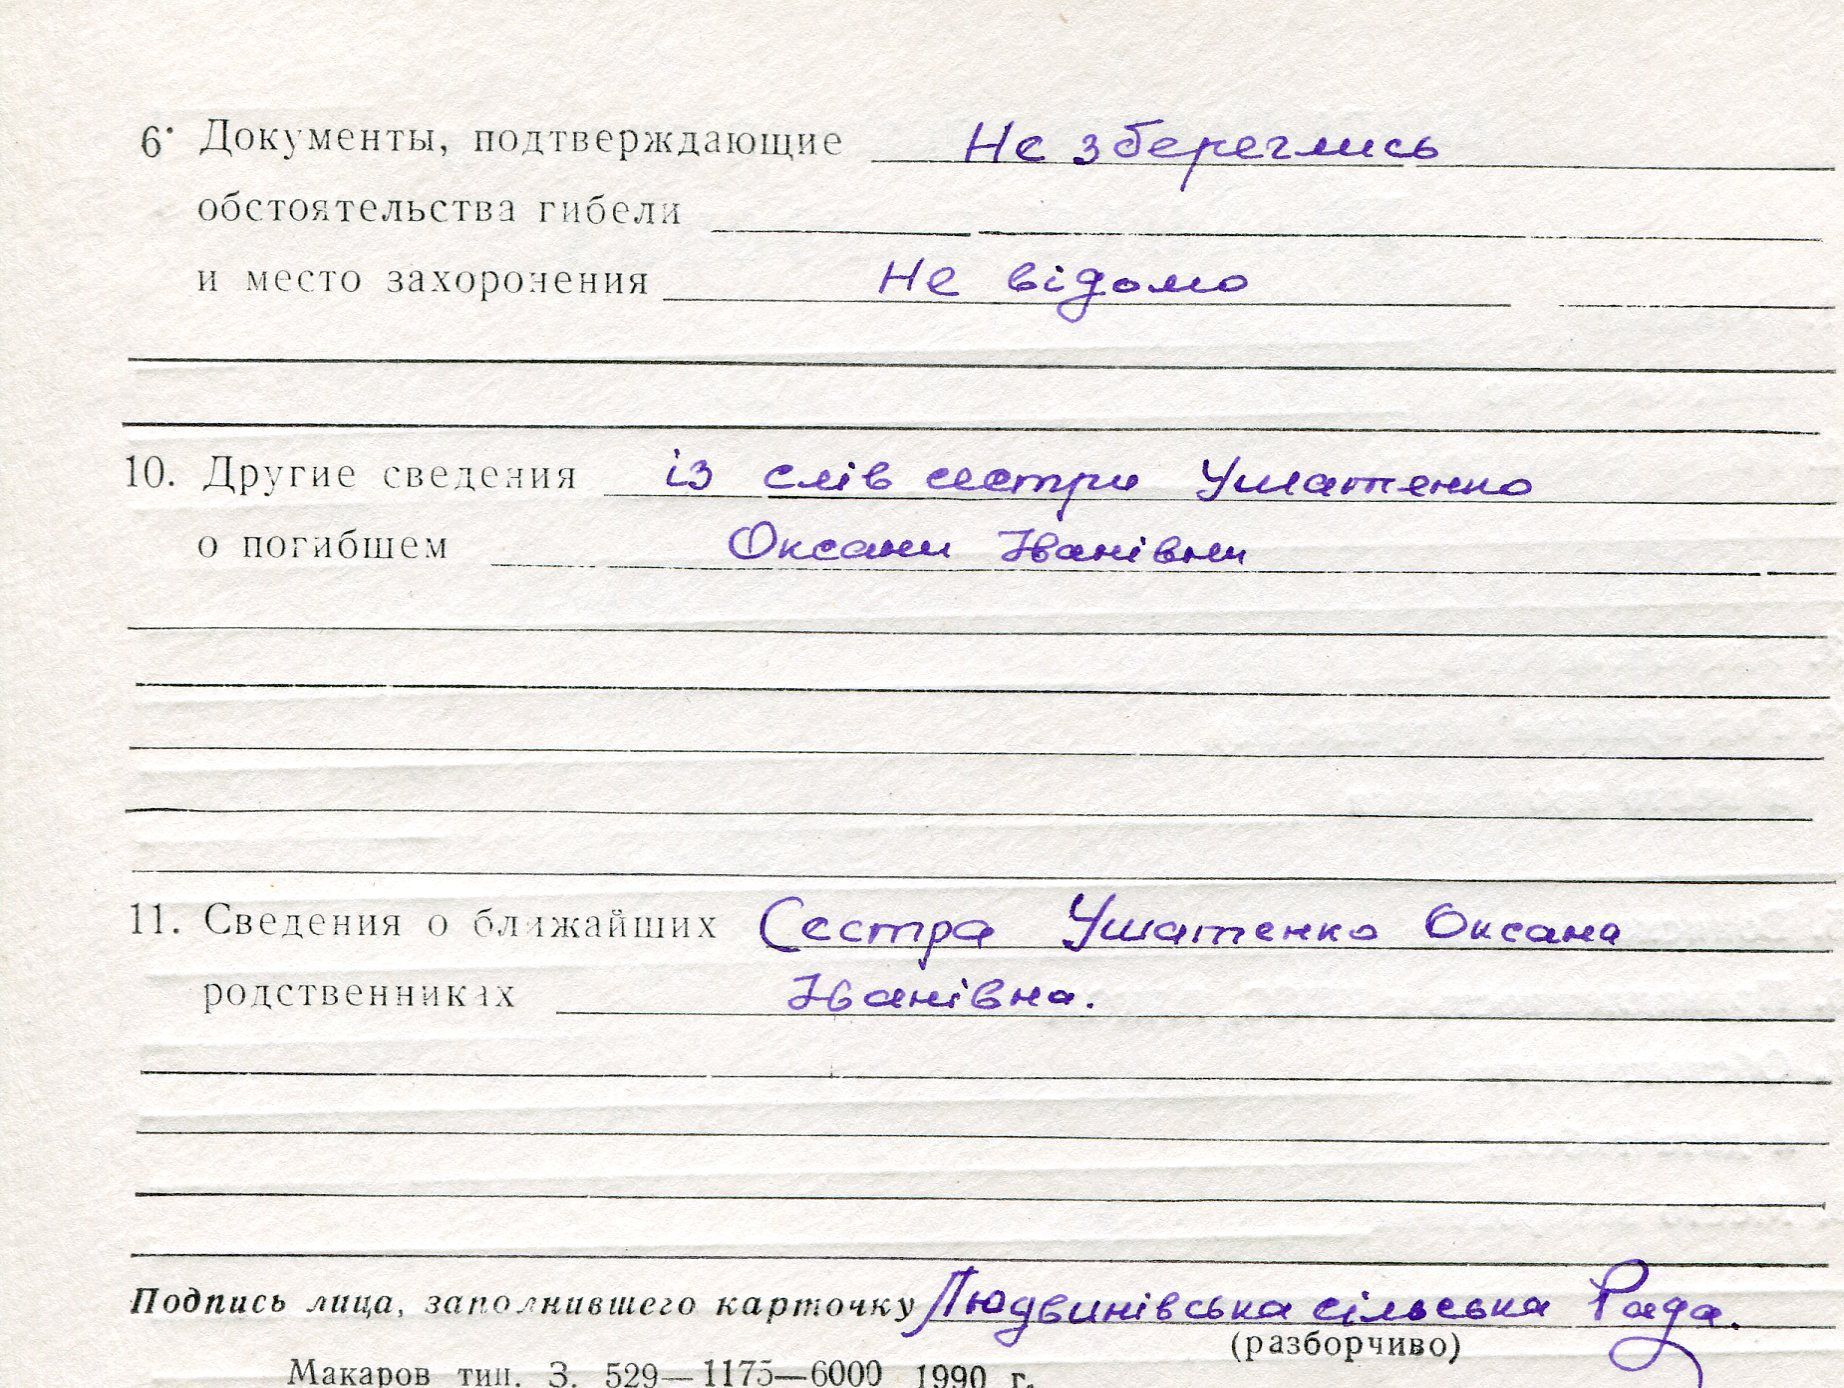 6. Документы, подтверждающие Не збереглись
обстоятельства гибели
и место захоронения Не відомо
10. Другие сведения із слів сестри Ушатенко
о погибшем Оксани Іванівни
11. Сведения о ближайших Сестра Ушатенко Оксана
родственниках Іванівна.
Подпись лица, заполнившего карточку Людвинівська сільська Рада.
(разборчиво)
Макаров тип. З. 529—1175—6000 1990 г.